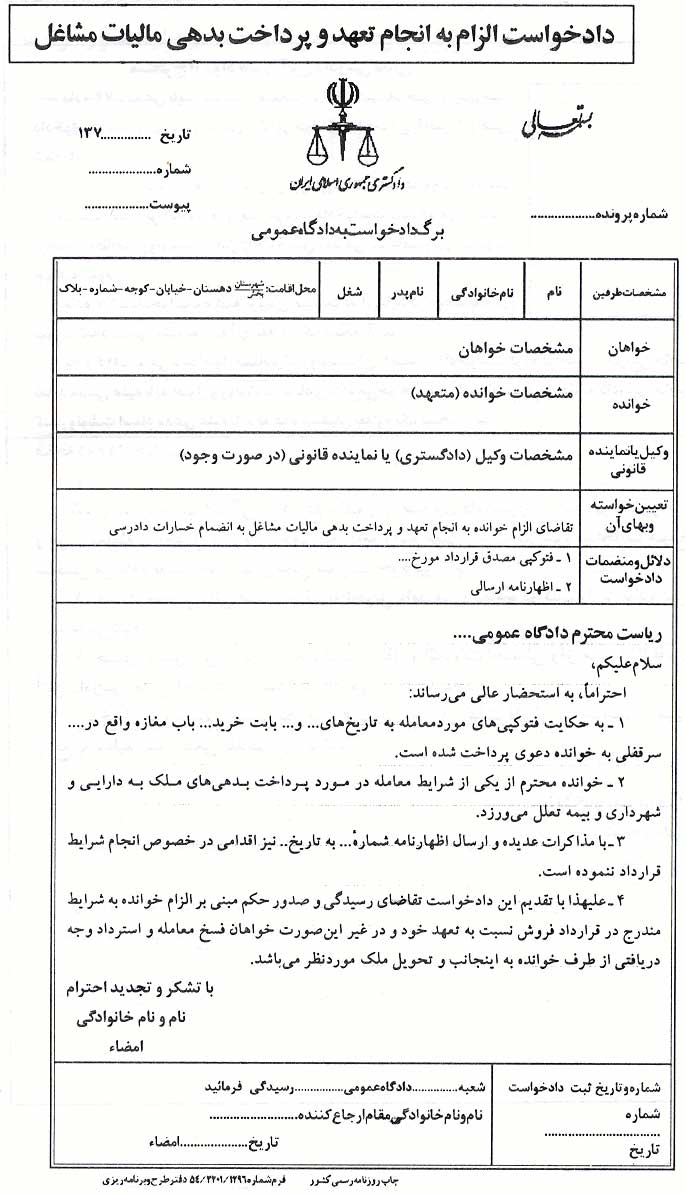 دادخواست الزام به انجام تعهد و پرداخت بدهی مالیات مشاغل
بسمه تعالی
تاریخ ............... ۱۳۷
شماره....................
پیوست...................
دادگستری جمهوری اسلامی ایران
شماره پرونده...................
برگ دادخواست به دادگاه عمومی
مشخصات طرفین
نام
نام خانوادگی
نام پدر
شغل
محل اقامت: شهرستان بخش دهستان-خیابان-کوچه-شماره-پلاک
خواهان
مشخصات خواهان
خوانده
مشخصات خوانده (متعهد)
وکیل یا نماینده
قانونی
مشخصات وکیل (دادگستری) یا نماینده قانونی (در صورت وجود)
تعیین خواسته
وبهای آن
تقاضای الزام خوانده به انجام تعهد و پرداخت بدهی مالیات مشاغل به انضمام خسارات دادرسی
دلائل و منضمات
دادخواست
۱ ـ فتوکپی مصدق قرارداد مورخ....
۲ ـ اظهارنامه ارسالی
ریاست محترم دادگاه عمومی....
سلام علیکم،
احتراماً، به استحضار عالی می‌رساند:
۱ ـ به حکایت فتوکپی‌های موردمعامله به تاریخ‌های... و... بابت خرید... باب مغازه واقع در....
سرقفلی به خوانده دعوی پرداخت شده است.
۲ ـ خوانده محترم از یکی از شرایط معامله در مورد پرداخت بدهی‌های ملک به دارایی و
شهرداری و بیمه تعلل می‌ورزد.
۳ ـ با مذاکرات عدیده و ارسال اظهارنامه شمارهٔ... به تاریخ.. نیز اقدامی در خصوص انجام شرایط
قرارداد ننموده است.
۴ ـ علیهذا با تقدیم این دادخواست تقاضای رسیدگی و صدور حکم مبنی بر الزام خوانده به شرایط
مندرج در قرارداد فروش نسبت به تعهد خود و در غیر این‌صورت خواهان فسخ معامله و استرداد وجه
دریافتی از طرف خوانده به اینجانب و تحویل ملک موردنظر می‌باشد.
با تشکر و تجدید احترام
نام و نام خانوادگی
امضاء
شماره و تاریخ ثبت دادخواست
شماره
.........................
تاریخ
شعبه...............دادگاه عمومی...............رسیدگی فرمائید
نام و نام خانوادگی مقام ارجاع کننده.......................
تاریخ....................امضاء
چاپ روزنامه رسمی کشور فرم شماره ۵۴/۳۲۰۱/۱۲۹۶ دفتر طرح و برنامه ریزی